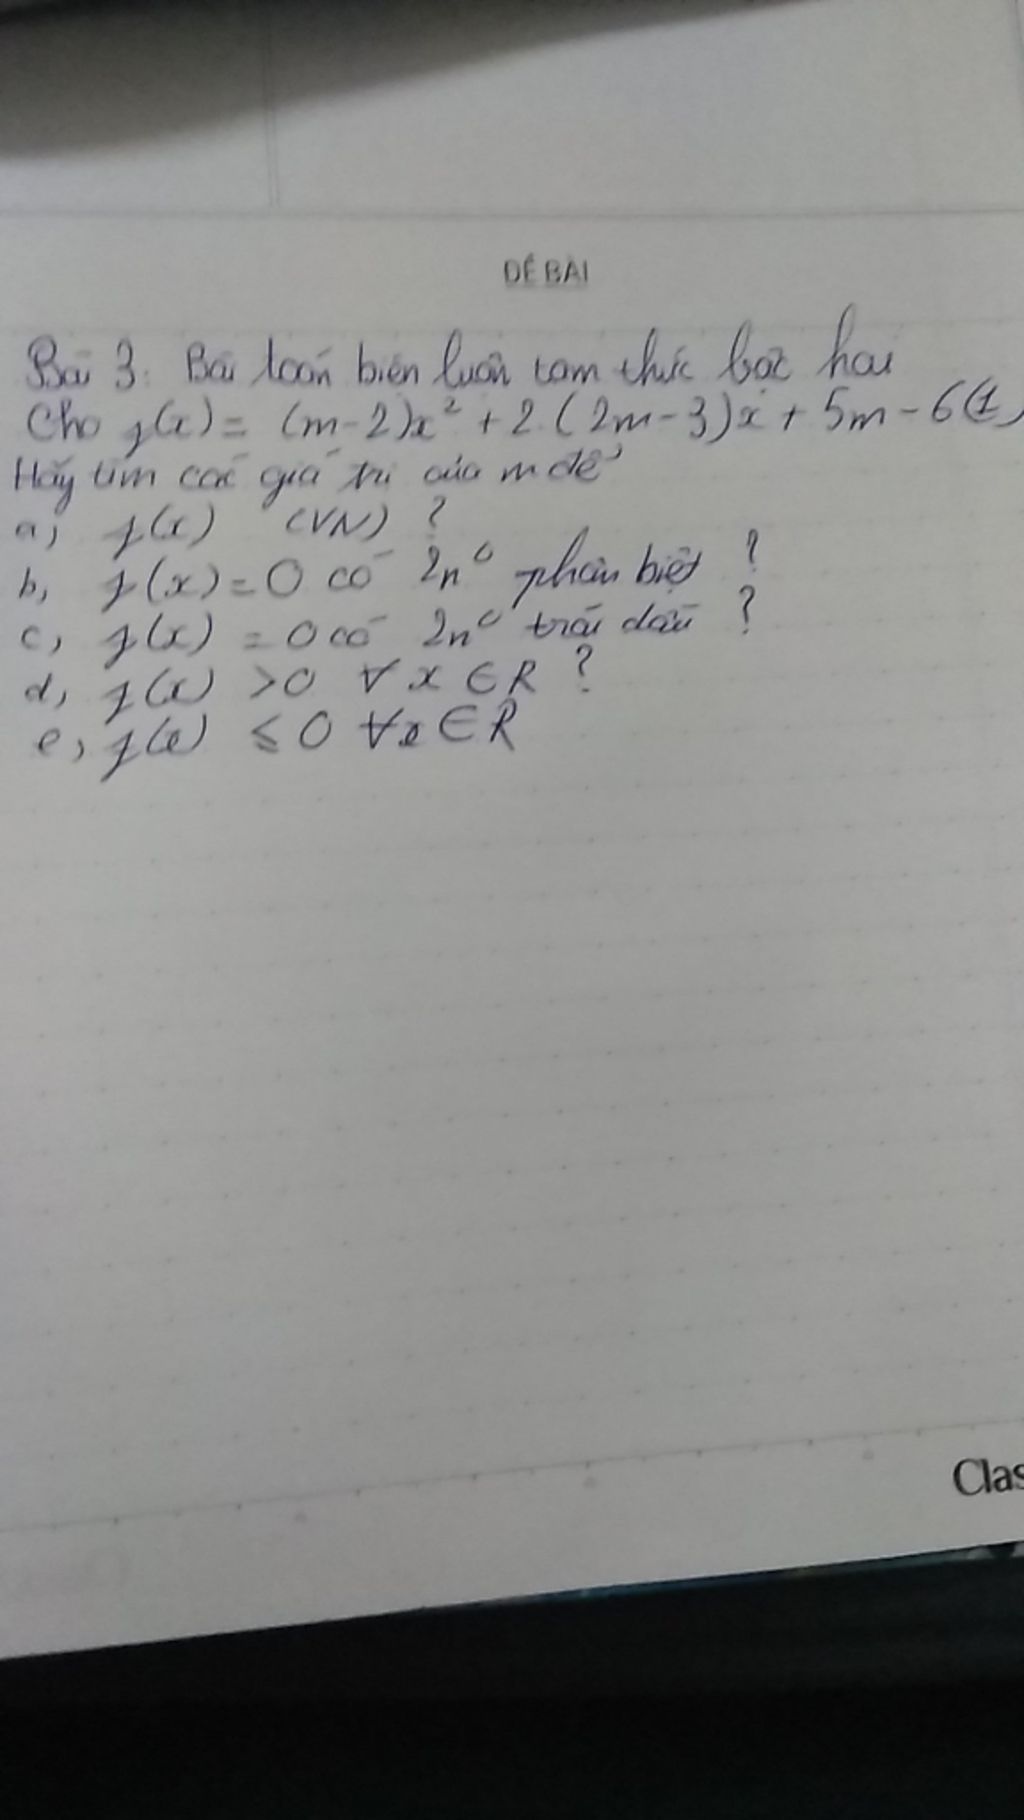 ĐỀ BÀI
Bài 3: Bài toán biện luận tam thức bậc hai
Cho f(x) = (m-2)x² + 2.(2m-3)x + 5m - 6 (1)
Hãy tìm các giá trị của m để
a, f(x) (VN) ?
b, f(x) = 0 có 2n⁰ phân biệt ?
c, f(x) = 0 có 2n⁰ trái dấu ?
d, f(x) > 0 ∀ x ∈ R ?
e, f(x) ≤ 0 ∀x ∈ R
Clas